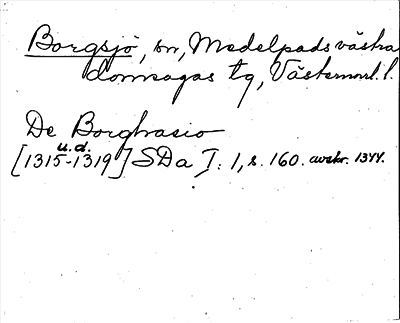 Borgsjö, sn, Medelpads västra
domsagas tg, Västernorrl. l.
De Borghasio
u.d.
[1315-1319] SDa I: 1, s. 160. avskr. 1344.